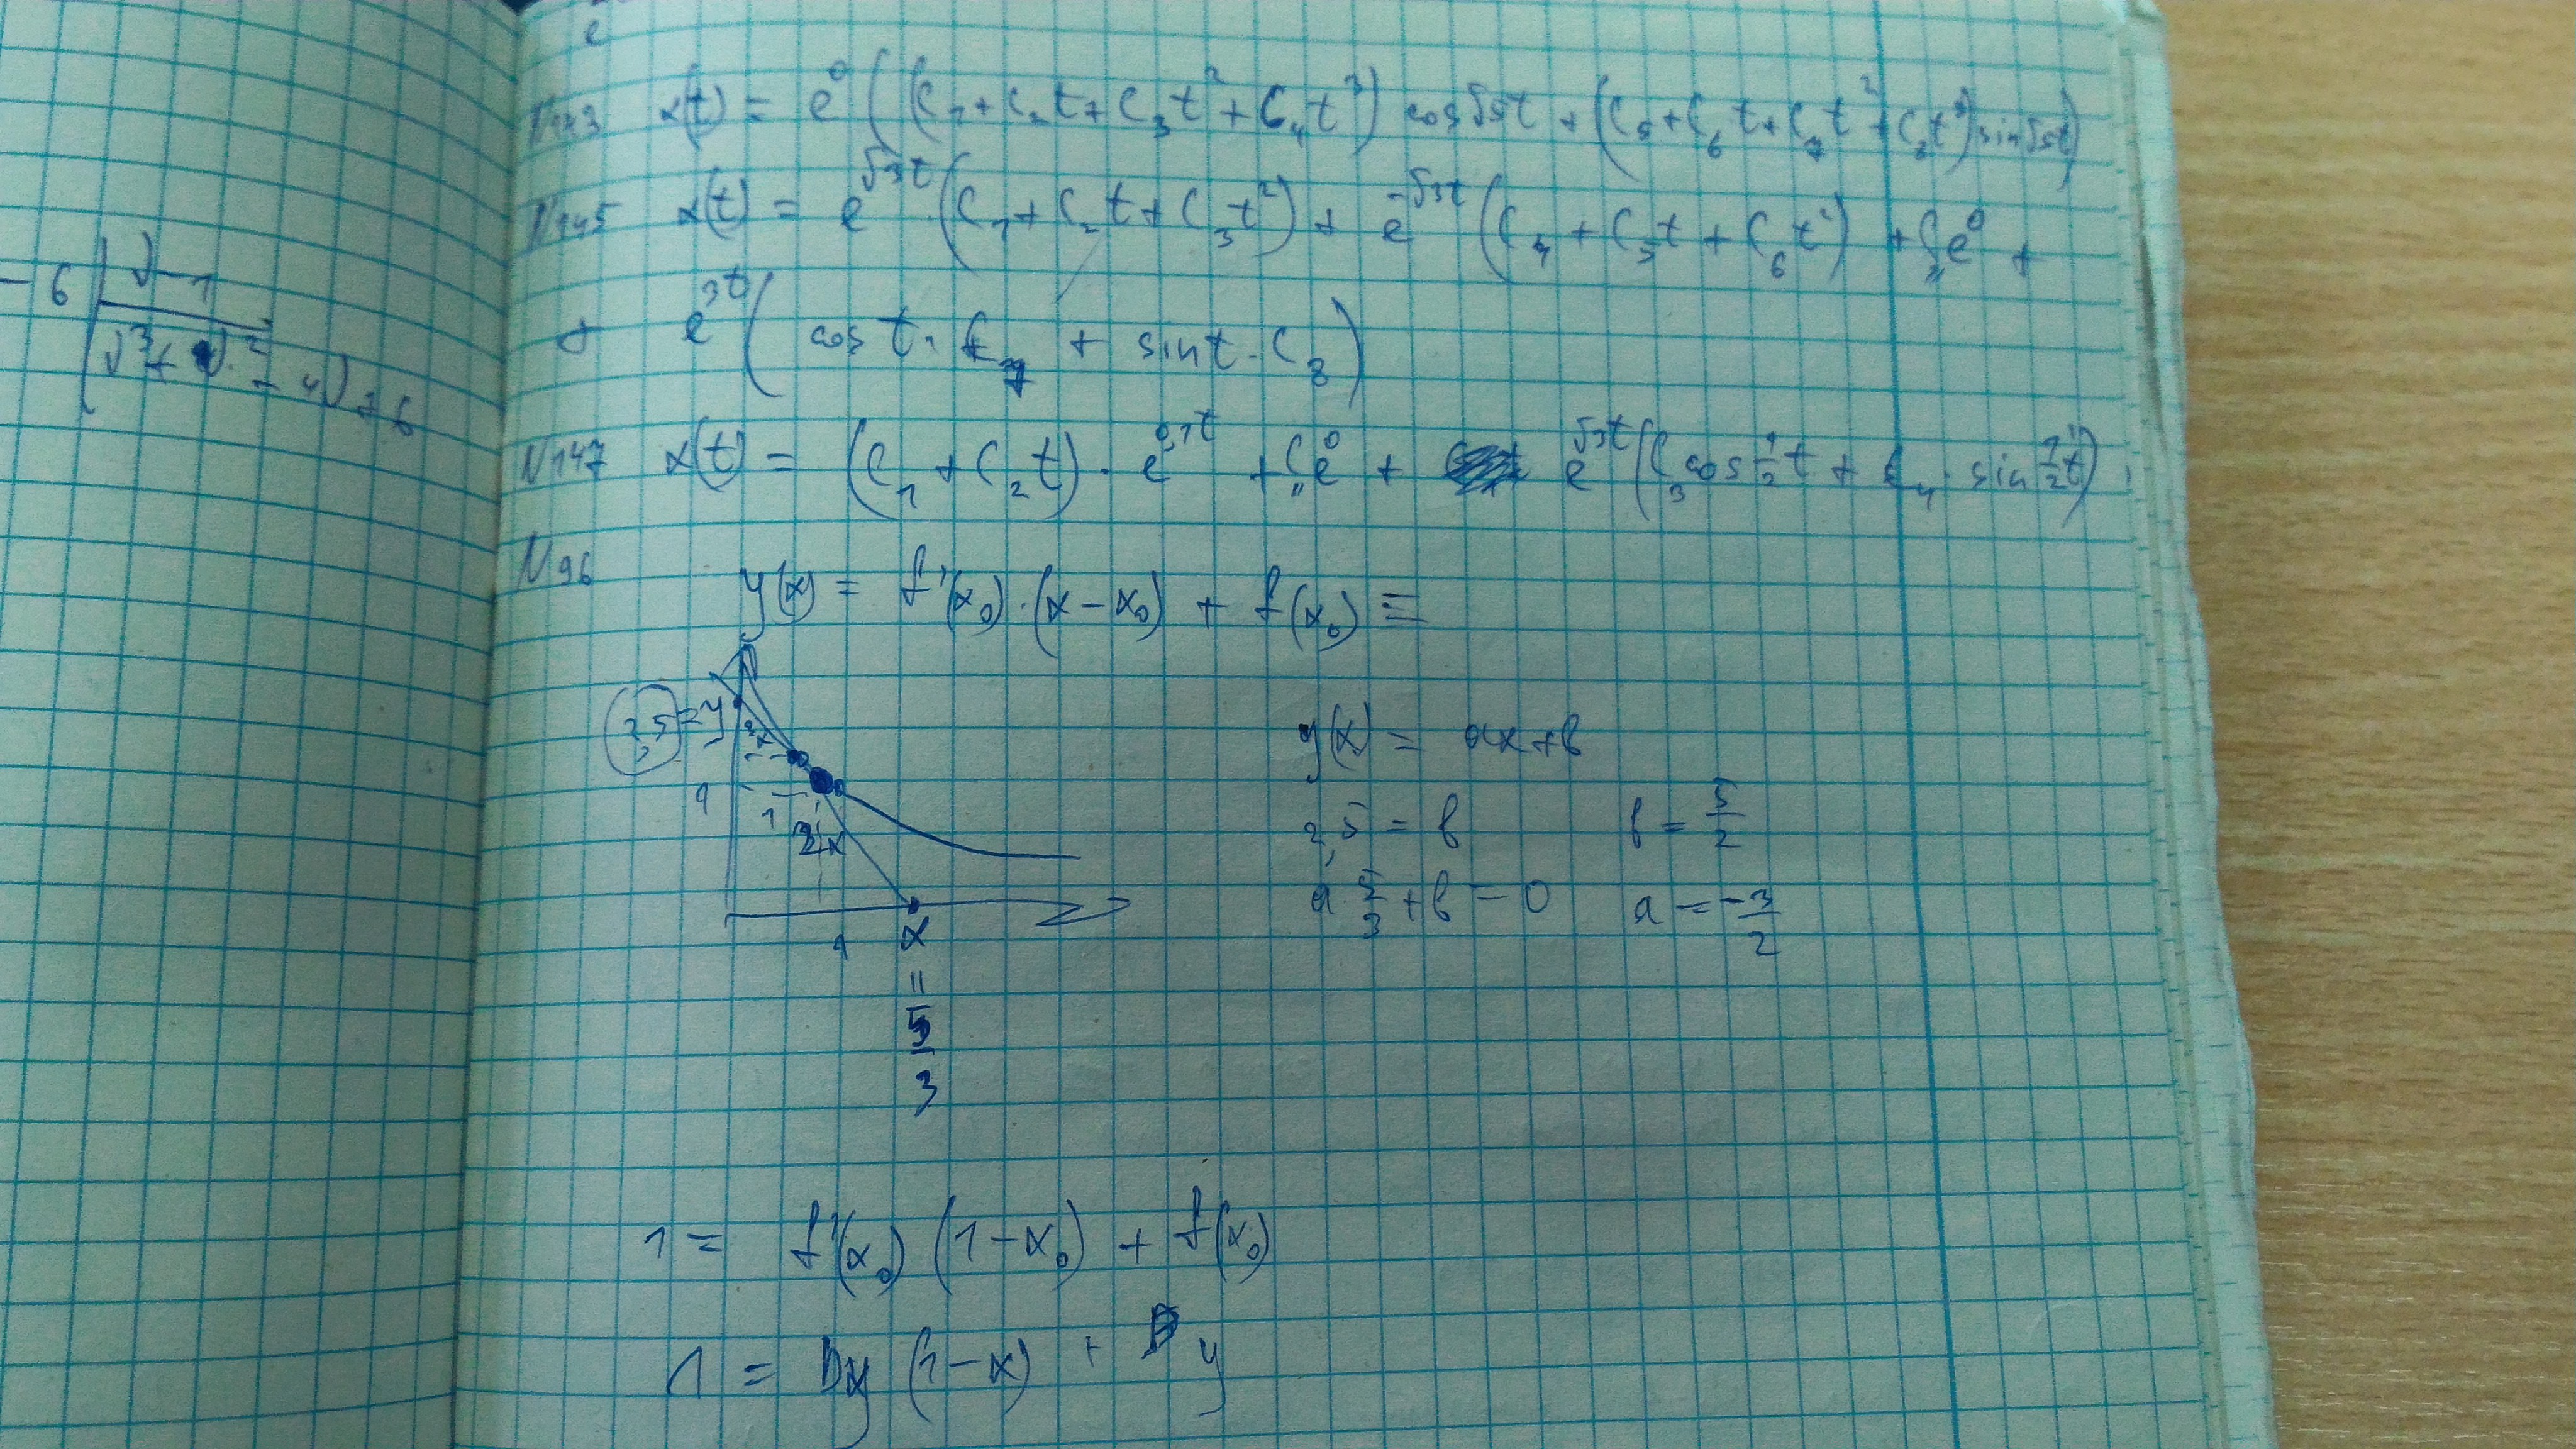 - 6
√-1
√³ + √² - 4√ + 6
N143 x(t) = e⁰ ((C₁ + C₂t + C₃t² + C₄t³) cos√5t + (C₅ + C₆t + C₇t² + C₈t³) sin√5t)
N145 x(t) = e^√3t (C₁ + C₂t + C₃t²) + e^-√3t (C₄ + C₅t + C₆t²) + C„e⁰ +
+ e^3t (cos t · C₇ + sin t · C₈)
N147 x(t) = (C₁ + C₂t) · e^0,1t + C„e⁰ + e^√3t (C₃ cos ½t + C₄ · sin ½t)
N96
y(x) = f'(x₀) · (x - x₀) + f(x₀) ≡
2,5 = y
1
1
1
x
=
5/3
y(x) = ax + b
2,5 = b b = 5/2
a · 5/3 + b = 0 a = -3/2
1 = f'(x₀) (1 - x₀) + f(x₀)
1 = Dy (1 - x) + y